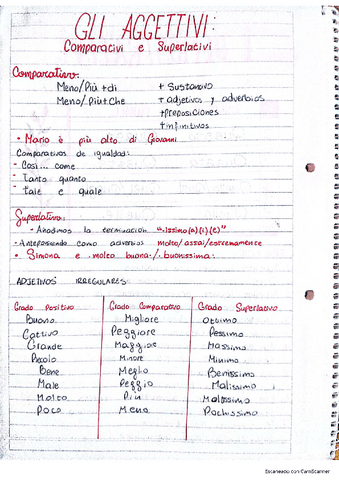 GLI AGGETTIVI:
Comparativi e Superlativi
Comparativo:
Meno/Più +di + Sustantivo
Meno/Più+Che + adjetivos y adverbios
+preposiciones
+infinitivos
- Mario è più alto di Giovanni
Comparativos de igualdad:
- Così ... come
- Tanto quanto
- Tale e quale
Superlativo:
- Añadimos la terminación "-issimo(a)(i)(e)"
- Anteponiendo como adverbios molto/assai/estremamente
- Simona è molto buona./..buonissima.
ADJETIVOS IRREGULARES:
Grado Positivo Grado Comparativo Grado Superlativo
Buono Migliore Ottimo
Cattivo Peggiore Pessimo
Grande Maggiore Massimo
Piccolo Minore Minimo
Bene Meglio Benissimo
Male Peggio Malissimo
Molto Più Moltissimo
Poco Meno Pochissimo
Escaneado con CamScanner